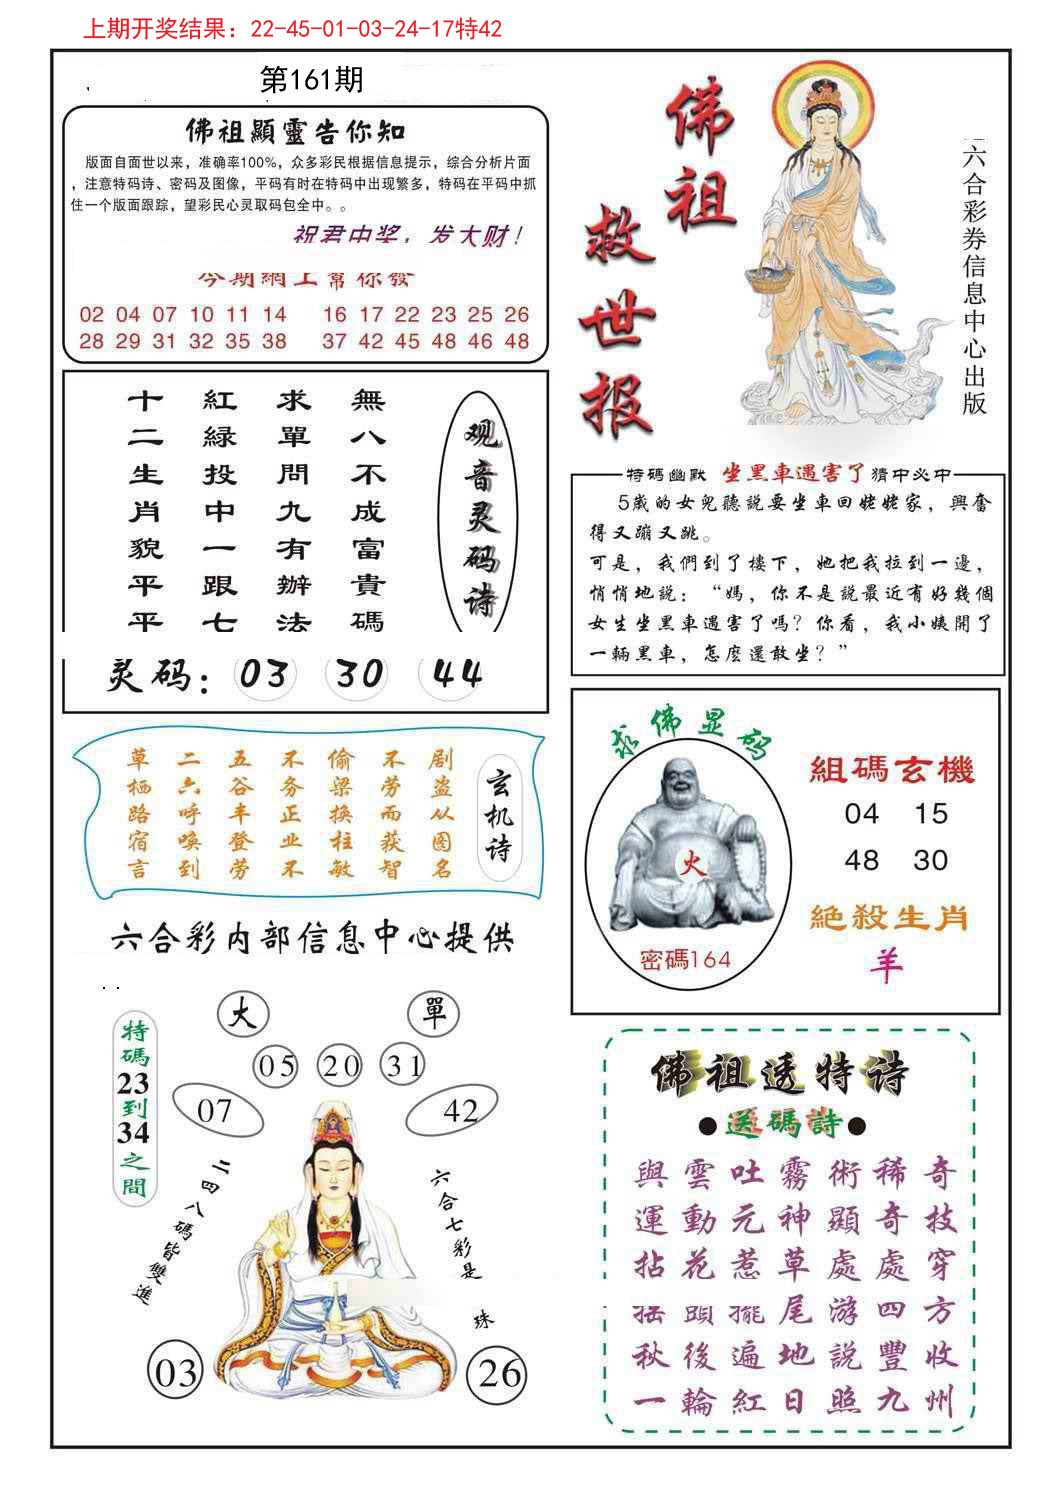 上期开奖结果：22-45-01-03-24-17特42
第161期
佛祖顯靈告你知
版面自面世以来，准确率100%，众多彩民根据信息提示，综合分析片面
，注意特码诗、密码及图像，平码有时在特码中出现繁多，特码在平码中抓
住一个版面跟踪，望彩民心灵取码包全中。。
祝君中奖，发大财！
今期網上幫你發
02 04 07 10 11 14 16 17 22 23 25 26
28 29 31 32 35 38 37 42 45 48 46 48
佛祖
救世报
六合彩券信息中心出版
观音灵码诗
無八不成富貴碼
求單問九有辦法
紅綠投中一跟七
十二生肖貌平平
灵码：03 30 44
特碼幽默 坐黑車遇害了 猜中必中
5歲的女兒聽説要坐車回姥姥家，興奮
得又蹦又跳。
可是，我們到了樓下，她把我拉到一邊，
悄悄地説：“媽，你不是説最近有好幾個
女生坐黑車遇害了嗎？你看，我小姨開了
一輛黑車，怎麽還敢坐？”
玄机诗
剧盗从图名
不劳而获智
偷梁换柱敏
不务正业不
五谷丰登劳
二六呼唤到
草栖路宿言
求佛显码
火
密碼164
組碼玄機
04 15
48 30
絶殺生肖
羊
六合彩内部信息中心提供
大 單
05 20 31
07 42
特碼23到34之間
二四八碼皆雙進
六合七彩是
珠
03 26
佛祖透特诗
●送碼詩●
與雲吐霧術稀奇
運動元神顯奇技
拈花惹草處處穿
摇頭擺尾游四方
秋後遍地説豐收
一輪紅日照九州